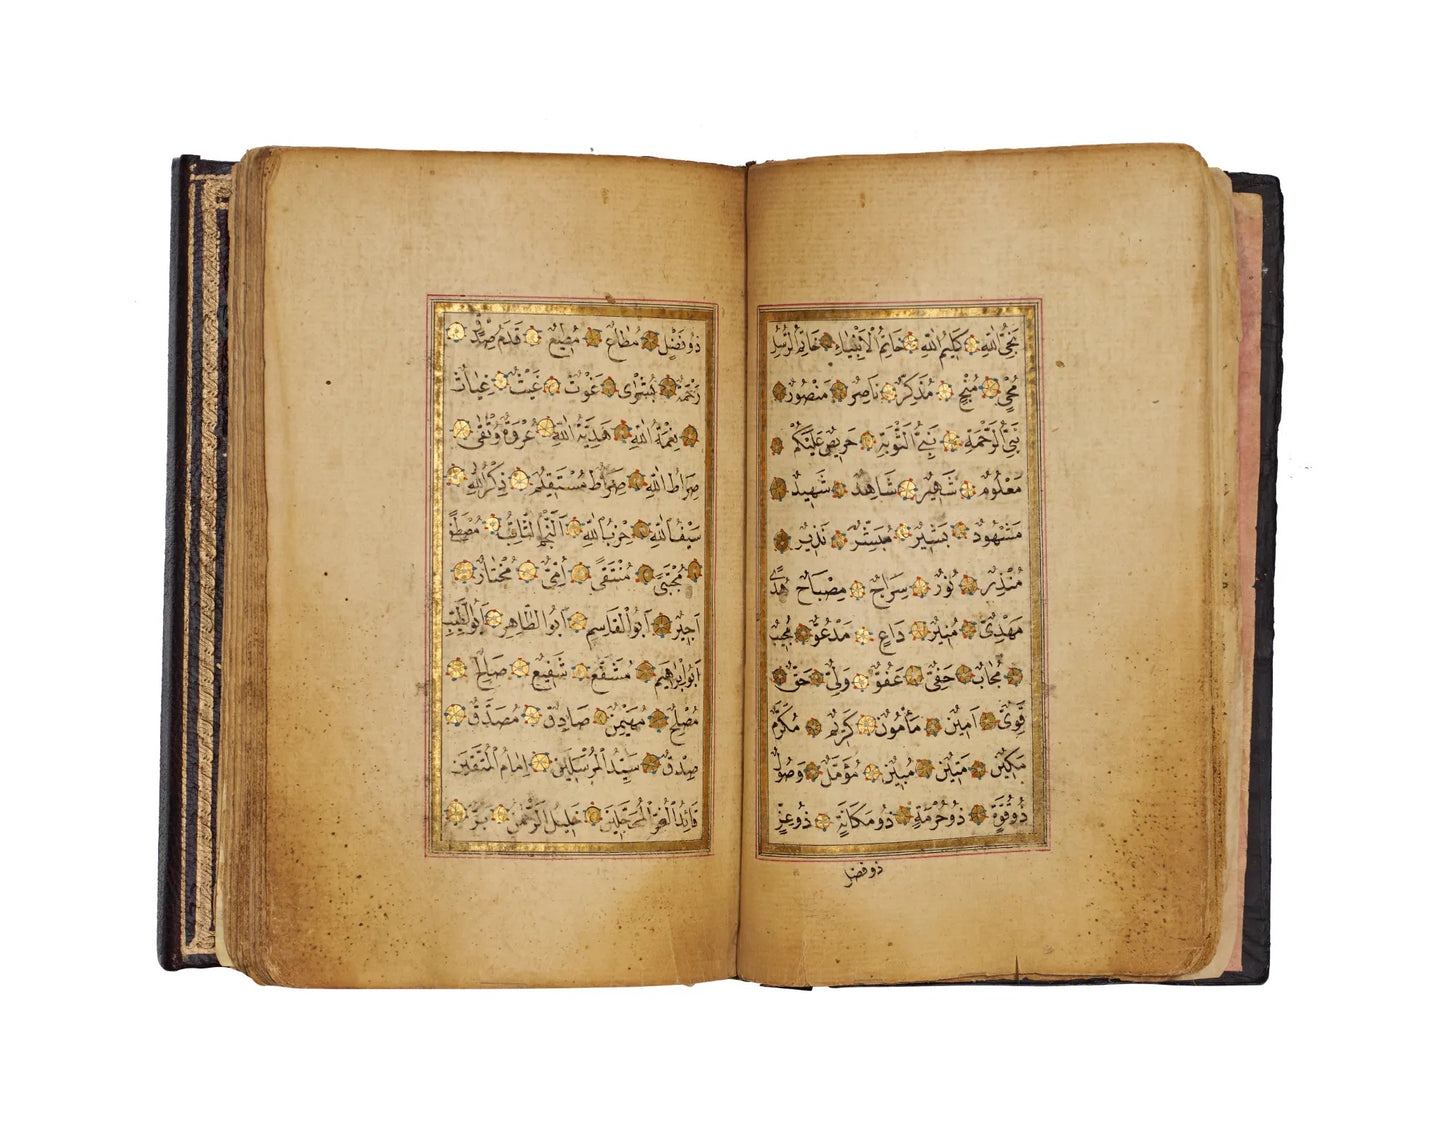 نَجِيُّ اللهِ كَلِيمُ اللهِ خَاتِمُ الْأَنْبِيَاءِ خَاتِمُ الرُّسُلِ
مُحْيٍ مُنْجٍ مُذَكِّرٌ نَاصِرٌ مَنْصُورٌ
نَبِيُّ الرَّحْمَةِ نَبِيُّ التَّوْبَةِ حَرِيصٌ عَلَيْكُمْ
مَعْلُومٌ شَهِيرٌ شَاهِدٌ شَهِيدٌ
مَشْهُودٌ بَشِيرٌ مُبَشِّرٌ نَذِيرٌ
مُنْذِرٌ نُورٌ سِرَاجٌ مِصْبَاحٌ هُدًى
مَهْدِيٌّ مُنِيرٌ دَاعٍ مَدْعُوٌّ مُجِيبٌ
مُجَابٌ حَفِيٌّ عَفُوٌّ وَلِيٌّ حَقٌّ
قَوِيٌّ اَمِينٌ مَأْمُونٌ كَرِيمٌ مُكَرَّمٌ
مَكِينٌ مَتِينٌ مُبِينٌ مُؤَمِّلٌ وَصُولٌ
ذُو قُوَّةٍ ذُو حُرْمَةٍ ذُو مَكَانَةٍ ذُو عِزٍّ
ذو فضل
ذُو فَضْلٍ مُطَاعٌ مُطِيعٌ قَدَمُ صِدْقٍ
رَحْمَةٌ بُشْرٰى غَوْثٌ غَيْثٌ غِيَاثٌ
نِعْمَةُ اللهِ هَدِيَّةُ اللهِ عُرْوَةٌ وُثْقٰى
صِرَاطُ اللهِ صِرَاطٌ مُسْتَقِيمٌ ذِكْرُ اللهِ
سَيْفُ اللهِ حِزْبُ اللهِ اَلنَّجْمُ الثَّاقِبُ مُصْطَفًى
مُجْتَبًى مُنْتَقًى اُمِّيٌّ مُخْتَارٌ
اَجِيرٌ اَبُو الْقَاسِمِ اَبُو الطَّاهِرِ اَبُو الطَّيِّبِ
اَبُو اِبْرَاهِيمَ مُشَفَّعٌ شَفِيعٌ صَالِحٌ
مُصْلِحٌ مُهَيْمِنٌ صَادِقٌ مُصَدَّقٌ
صِدْقٌ سَيِّدُ الْمُرْسَلِينَ اِمَامُ الْمُتَّقِينَ
قَائِدُ الْغُرِّ الْمُحَجَّلِينَ خَلِيلُ الرَّحْمٰنِ بَرٌّ